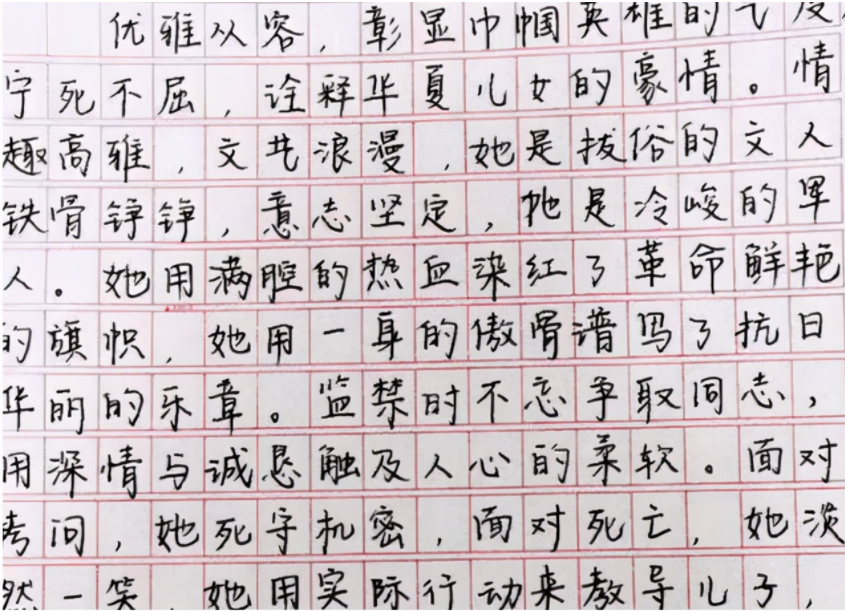 优雅从容，彰显巾帼英雄的气度，
宁死不屈，诠释华夏儿女的豪情。情
趣高雅，文艺浪漫，她是拔俗的文人
铁骨铮铮，意志坚定，她是冷峻的军
人。她用满腔的热血染红了革命鲜艳
的旗帜，她用一身的傲骨谱写了抗日
华丽的乐章。监禁时不忘争取同志，
用深情与诚恳触及人心的柔软。面对
拷问，她死守机密，面对死亡，她淡
然一笑，她用实际行动来教导儿子，